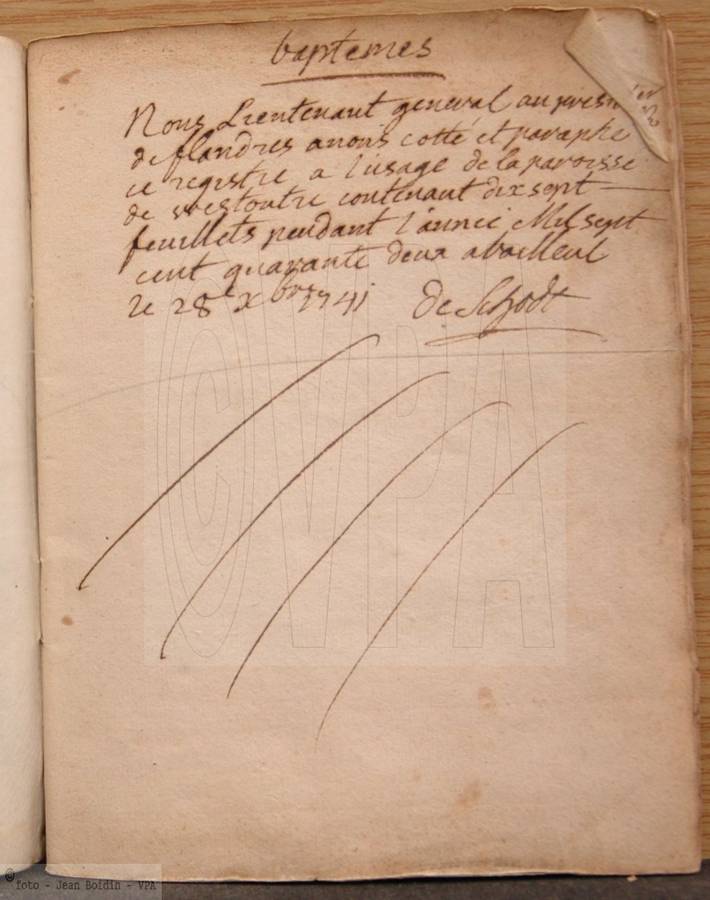 baptemes
Nous Lieutenant general au presi
de flandres avons cotté et paraphé
ce registre a l'usage de la paroisse
de westoutre contenant dix sept
feuillets pendant l'année Mil sept
cent quarante deux a bailleul
le 28e xbre 1741 de Schodt
CVPA
© foto - Jean Boidin - VPA